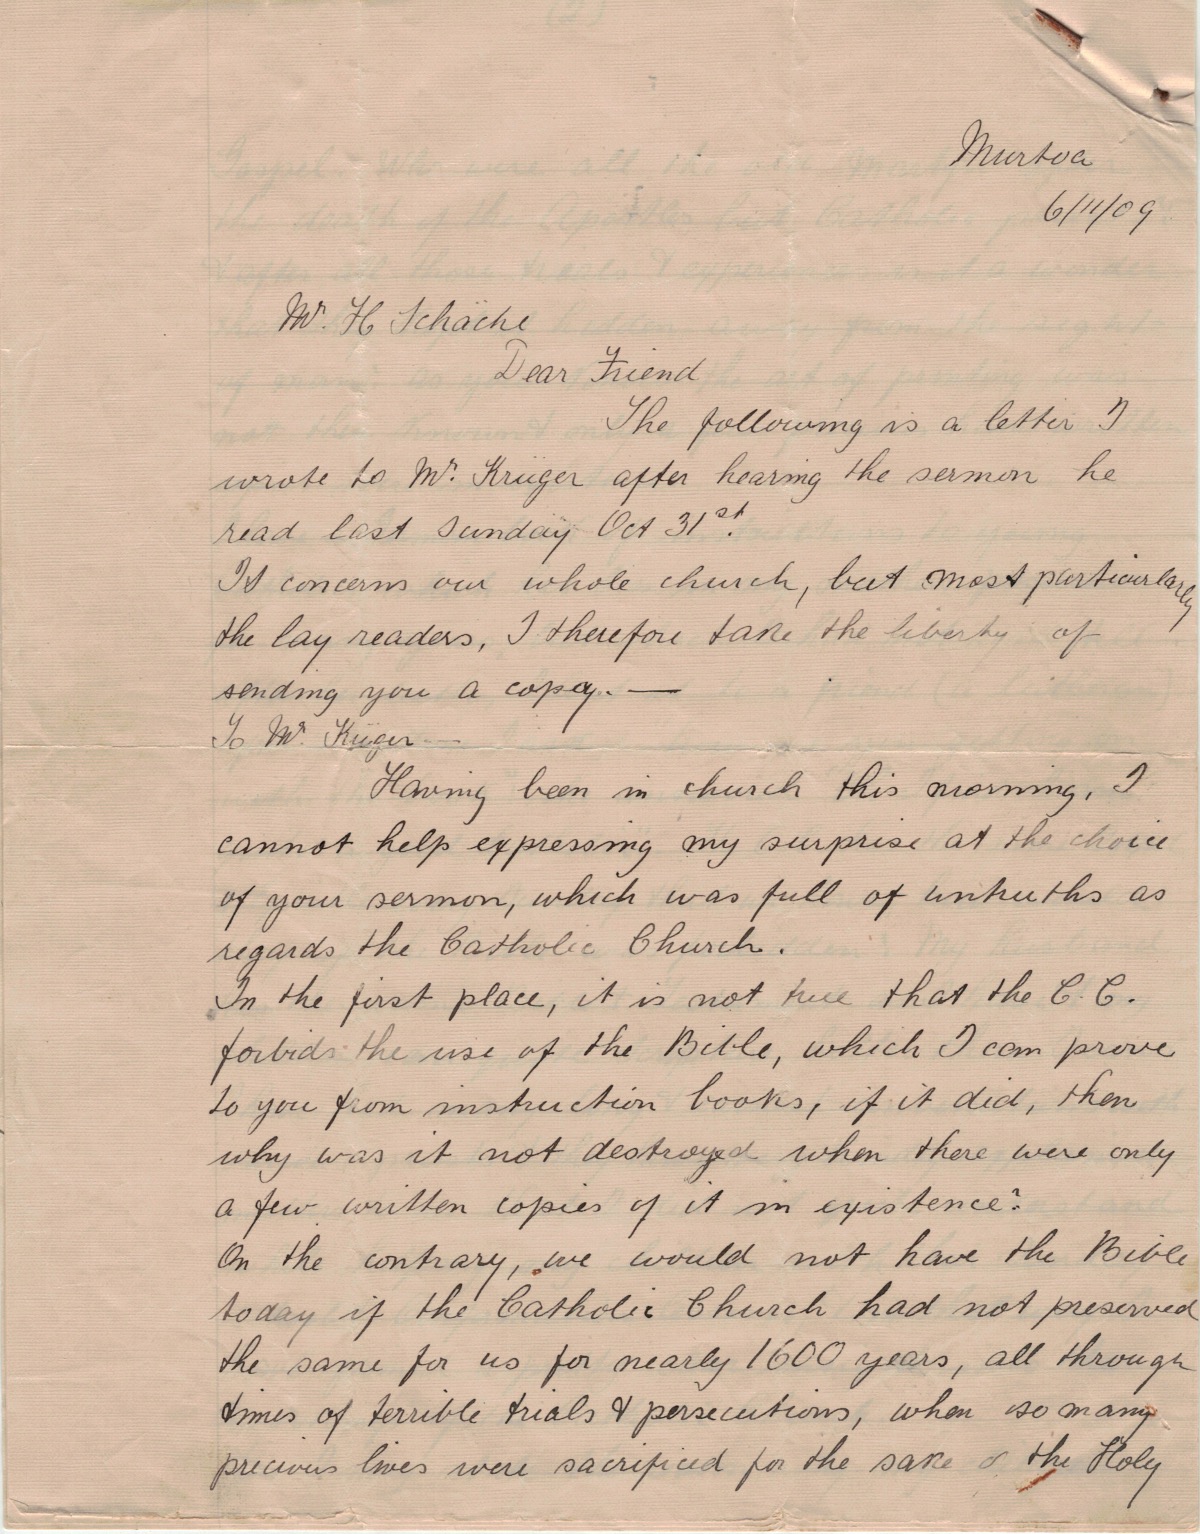 Murtoa
6/11/09
Mr. H Schäche
Dear Friend
The following is a letter I
wrote to Mr. Krüger after hearing the sermon he
read last Sunday Oct 31st.
It concerns our whole church, but most particularly
the lay readers, I therefore take the liberty of
sending you a copy. —
To Mr. Küger —
Having been in church this morning, I
cannot help expressing my surprise at the choice
of your sermon, which was full of untruths as
regards the Catholic Church.
In the first place, it is not true that the C. C.
forbids the use of the Bible, which I can prove
to you from instruction books, if it did, then
why was it not destroyed when there were only
a few written copies of it in existence?
On the contrary, we would not have the Bible
today if the Catholic Church had not preserved
the same for us for nearly 1600 years, all through
times of terrible trials & persecutions, when so many
precious lives were sacrificed for the sake of the Holy